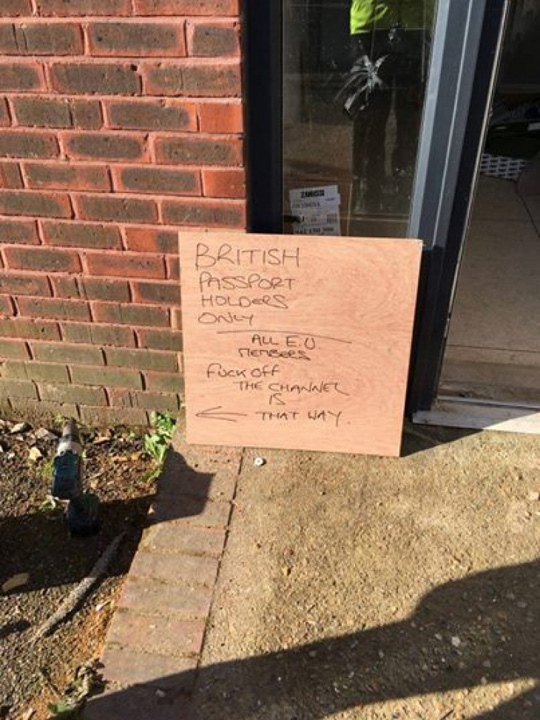 BRITISH
PASSPORT
HOLDERS
ONLY
ALL E.U
MEMBERS
FUCK OFF
THE CHANNEL
IS
← THAT WAY.
ZANUSSI